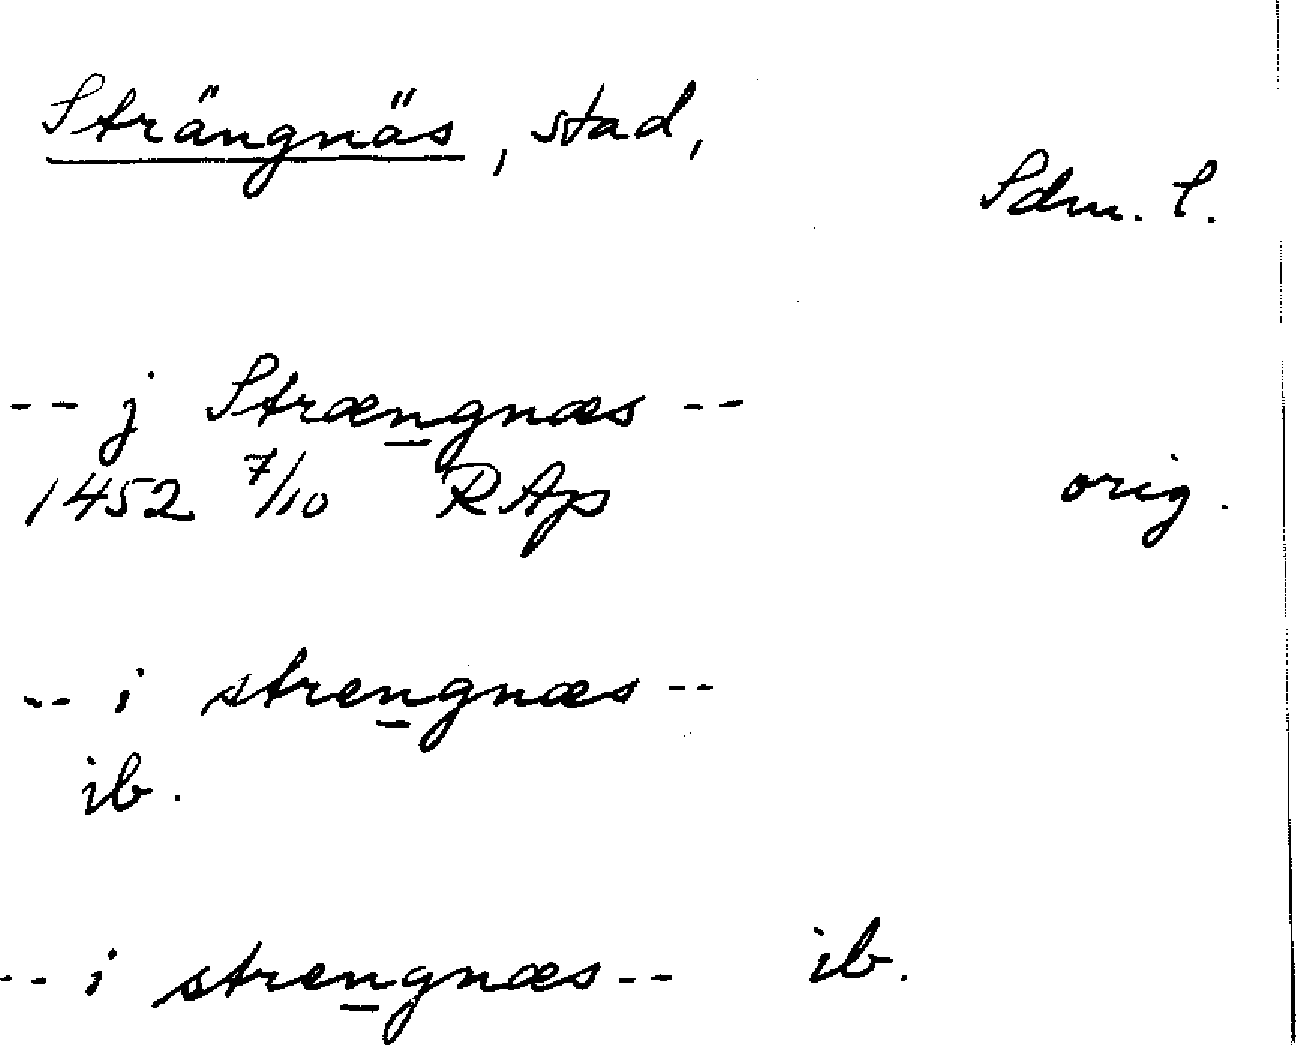 Strängnäs, stad,
Sdm. l.
-- j Strængnæs --
1452 7/10 RAp orig.
-- i strengnæs --
ib.
-- i strengnæs -- ib.